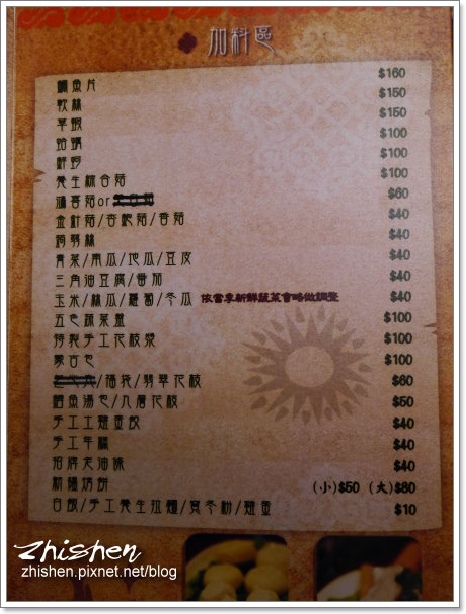 加料區
鯛魚片 $160
軟絲 $150
草蝦 $150
蛤蠣 $100
鮮蚵 $100
養生綜合菇 $100
鴻喜菇or $60
金針菇/杏鮑菇/香菇 $40
蒟蒻絲 $40
青菜/南瓜/地瓜/豆皮 $40
三角油豆腐/番茄 $40
玉米/絲瓜/蘿蔔/冬瓜 依當季新鮮蔬菜會略做調整 $40
五色蔬菜盤 $100
特製手工花枝漿 $100
蒙古包 $100
/福袋/翡翠花枝 $60
鱈魚湯包/八層花枝 $50
手工土雞蛋餃 $40
手工年糕 $40
招牌老油條 $40
新疆奶餅 (小)$50 (大)$80
白飯/手工養生拉麵/寬冬粉/雞蛋 $10
Zhishen
zhishen.pixnet.net/blog